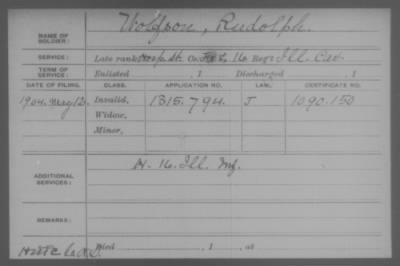 NAME OF SOLDIER: Wolfson, Rudolph.
SERVICE: Late rank, Co. 16 Reg't Ill. Cav.
TERM OF SERVICE: Enlisted , 1 Discharged , 1
DATE OF FILING. CLASS. APPLICATION NO. LAW. CERTIFICATE NO.
1904. May 12. Invalid, 1315.794. J 1090.150
Widow,
Minor,
ADDITIONAL SERVICES: H. 16. Ill. Inf.
REMARKS:
Died , 1 , at